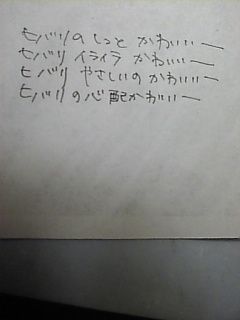 ヒバリのしっと かわいいー
ヒバリ イライラ かわいいー
ヒバリ やさしいの かわいいー
ヒバリ の心配かわいいー